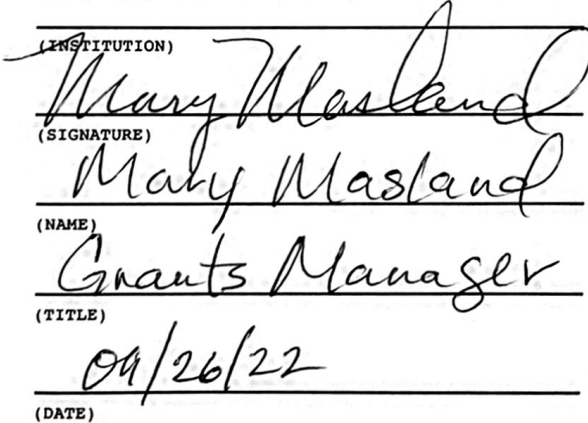 (INSTITUTION)
Mary Masland
(SIGNATURE)
Mary Masland
(NAME)
Grants Manager
(TITLE)
09/26/22
(DATE)